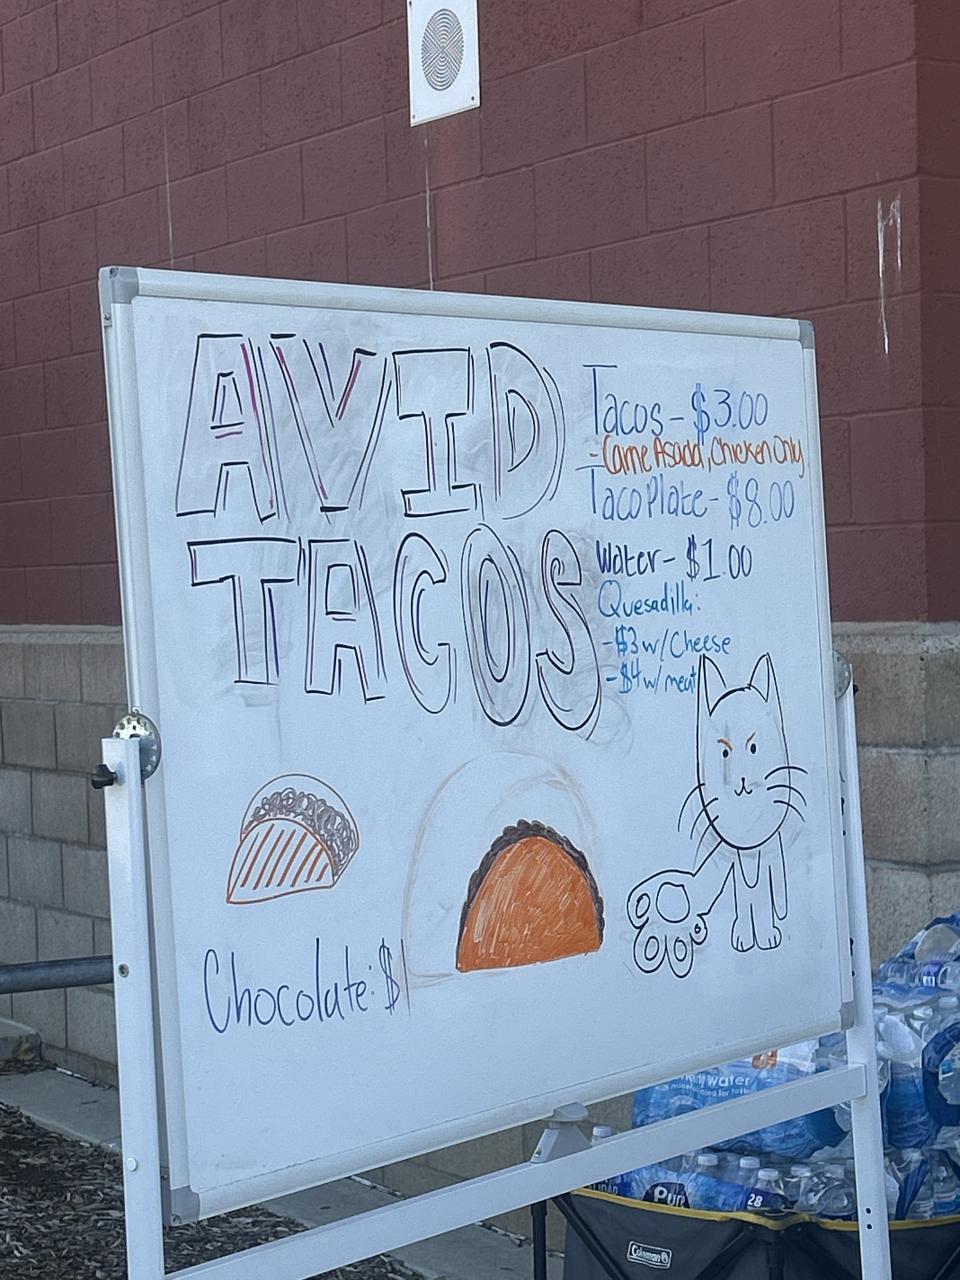 AVID
TACOS
Tacos - $3.00
- Carne Asada, Chicken Only
Taco Plate - $8.00
Water - $1.00
Quesadilla:
- $3 w/ Cheese
- $4 w/ meat
Chocolate: $1
Water
Pure
28
Coleman